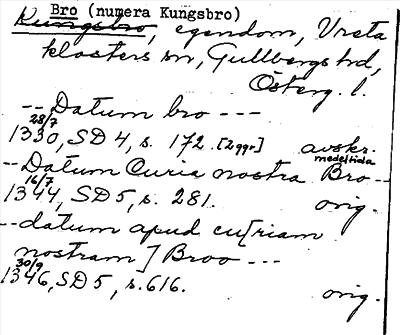 Bro (numera Kungsbro)
Kungsbro, egendom, Vreta
klosters sn, Gullbergs hd,
Österg. l.
-- Datum bro ---
28/7
1330, SD 4, s. 172. [2 ggr] avskr.
medeltida
-- Datum Curia nostra Bro --
16/7
1344, SD 5, s. 281. orig.
-- datum apud cu[riam
nostram] Broo ---
30/9
1346, SD 5, s. 616. orig.